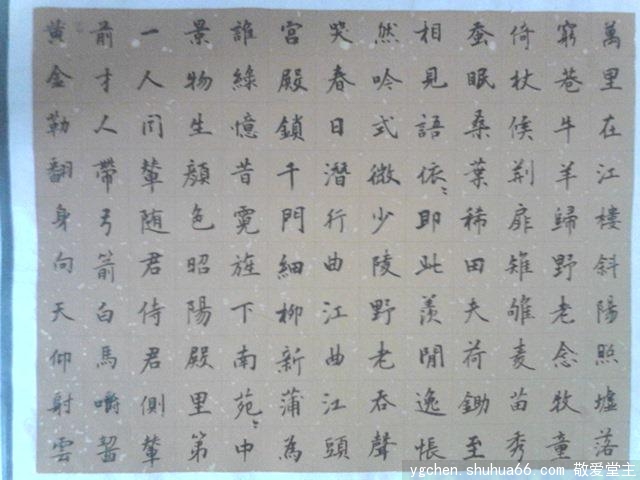 萬里在江樓斜陽照墟落
窮巷牛羊歸野老念牧童
倚杖候荆扉雉雊麦苗秀
蚕眠桑葉稀田夫荷鋤至
相見語依〻即此羨閒逸悵
然吟式微少陵野老吞聲
哭春日潛行曲江曲江頭
宮殿鎖千門細柳新蒲為
誰綠憶昔霓旌下南苑〻中
景物生顏色昭陽殿里第
一人同輦随君侍君側輦
前才人帶弓箭白馬嚼齧
黄金勒翻身向天仰射雲
ygchen.shuhua66.com 敬爱堂主